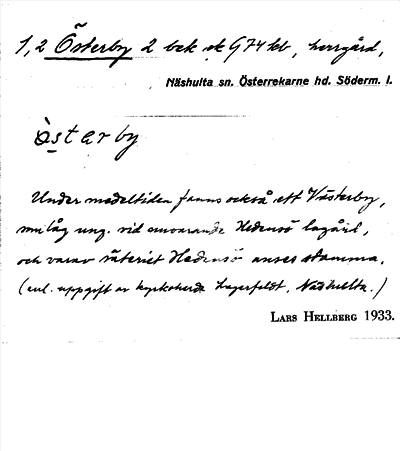 1, 2 Österby 2 bek ek G74 kb, herrgård,
Näshulta sn. Österrekarne hd. Söderm. l.
òsterby
Under medeltiden fanns också ett Västerby,
som låg ung. vid nuvarande Hedensö lagård,
och varav säteriet Hedensö anses stamma.
(enl. uppgift av kyrkoherde Lagerfeldt, Näshulta.)
LARS HELLBERG 1933.